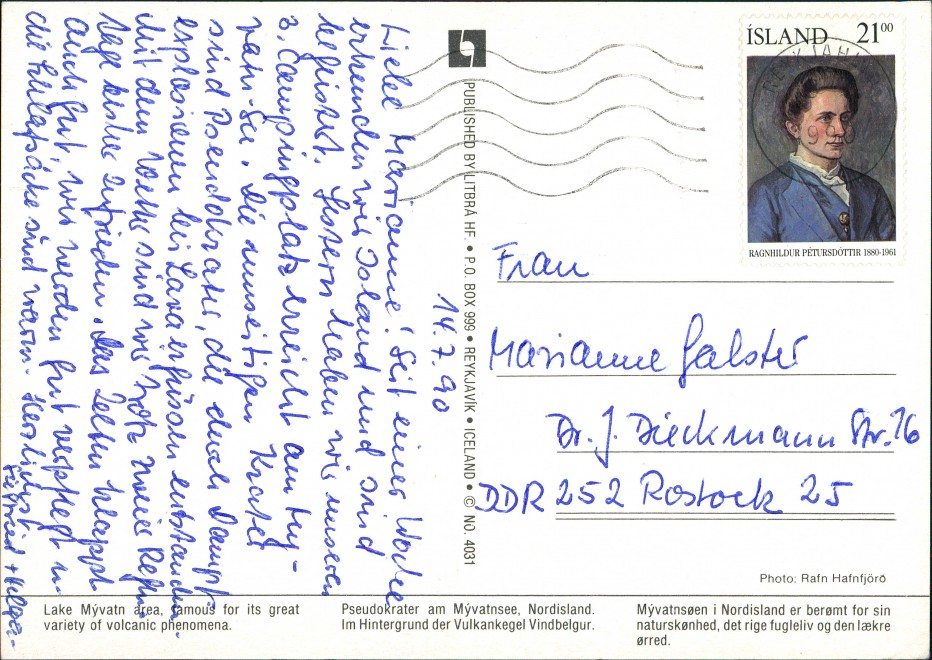 14.7.90
Liebe Marianne! Seit einer Woche
erkunden wir Island und sind
begeistert. Gestern haben wir unseren
3. Campingplatz erreicht am My-
vatn-See. Die umseitigen Krater
sind Pseudokrater, die durch Dampf-
explosionen bei Lavaergüssen entstanden.
Mit dem Wetter sind wir trotz zweier Regen-
tage bisher zufrieden. Das Zelten klappt
auch gut, wir werden gut verpflegt u.
die Schlafsäcke sind warm. Herzlichst
+
PUBLISHED BY LITBRÁ HF. • P.O. BOX 999 • REYKJAVÍK • ICELAND • © NO. 4031
ÍSLAND 21⁰⁰
RAGNHILDUR PÉTURSDÓTTIR 1880-1961
Frau
Marianne Galster
Dr. J. Dieckmann Str. 16
DDR 252 Rostock 25
Photo: Rafn Hafnfjörð
Lake Mývatn area, famous for its great
variety of volcanic phenomena.
Pseudokrater am Mývatnsee, Nordisland.
Im Hintergrund der Vulkankegel Vindbelgur.
Mývatnsøen i Nordisland er berømt for sin
naturskønhed, det rige fugleliv og den lækre
ørred.